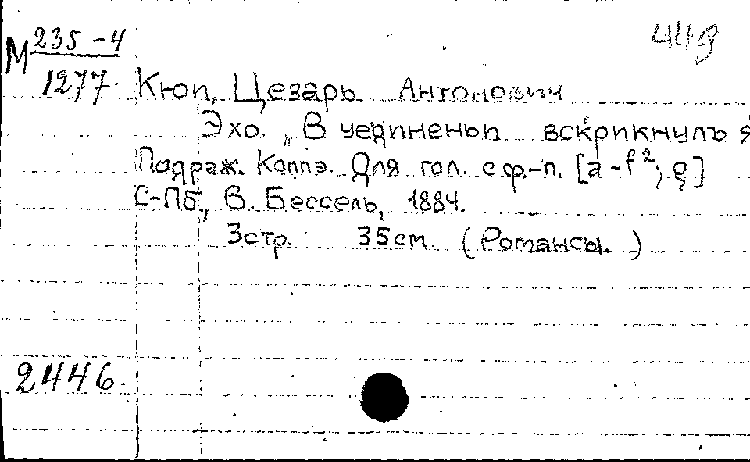 М 235-4 449
1277 Кюи, Цезарь Антонович
Эхо. „В уединеньи вскрикнулъ я
Подраж. Коппэ. Для гол. с ф.-п. [a-f²; e]
С-Пб, В. Бессель, 1884.
3 стр. 35 см (Романсы.)
2446